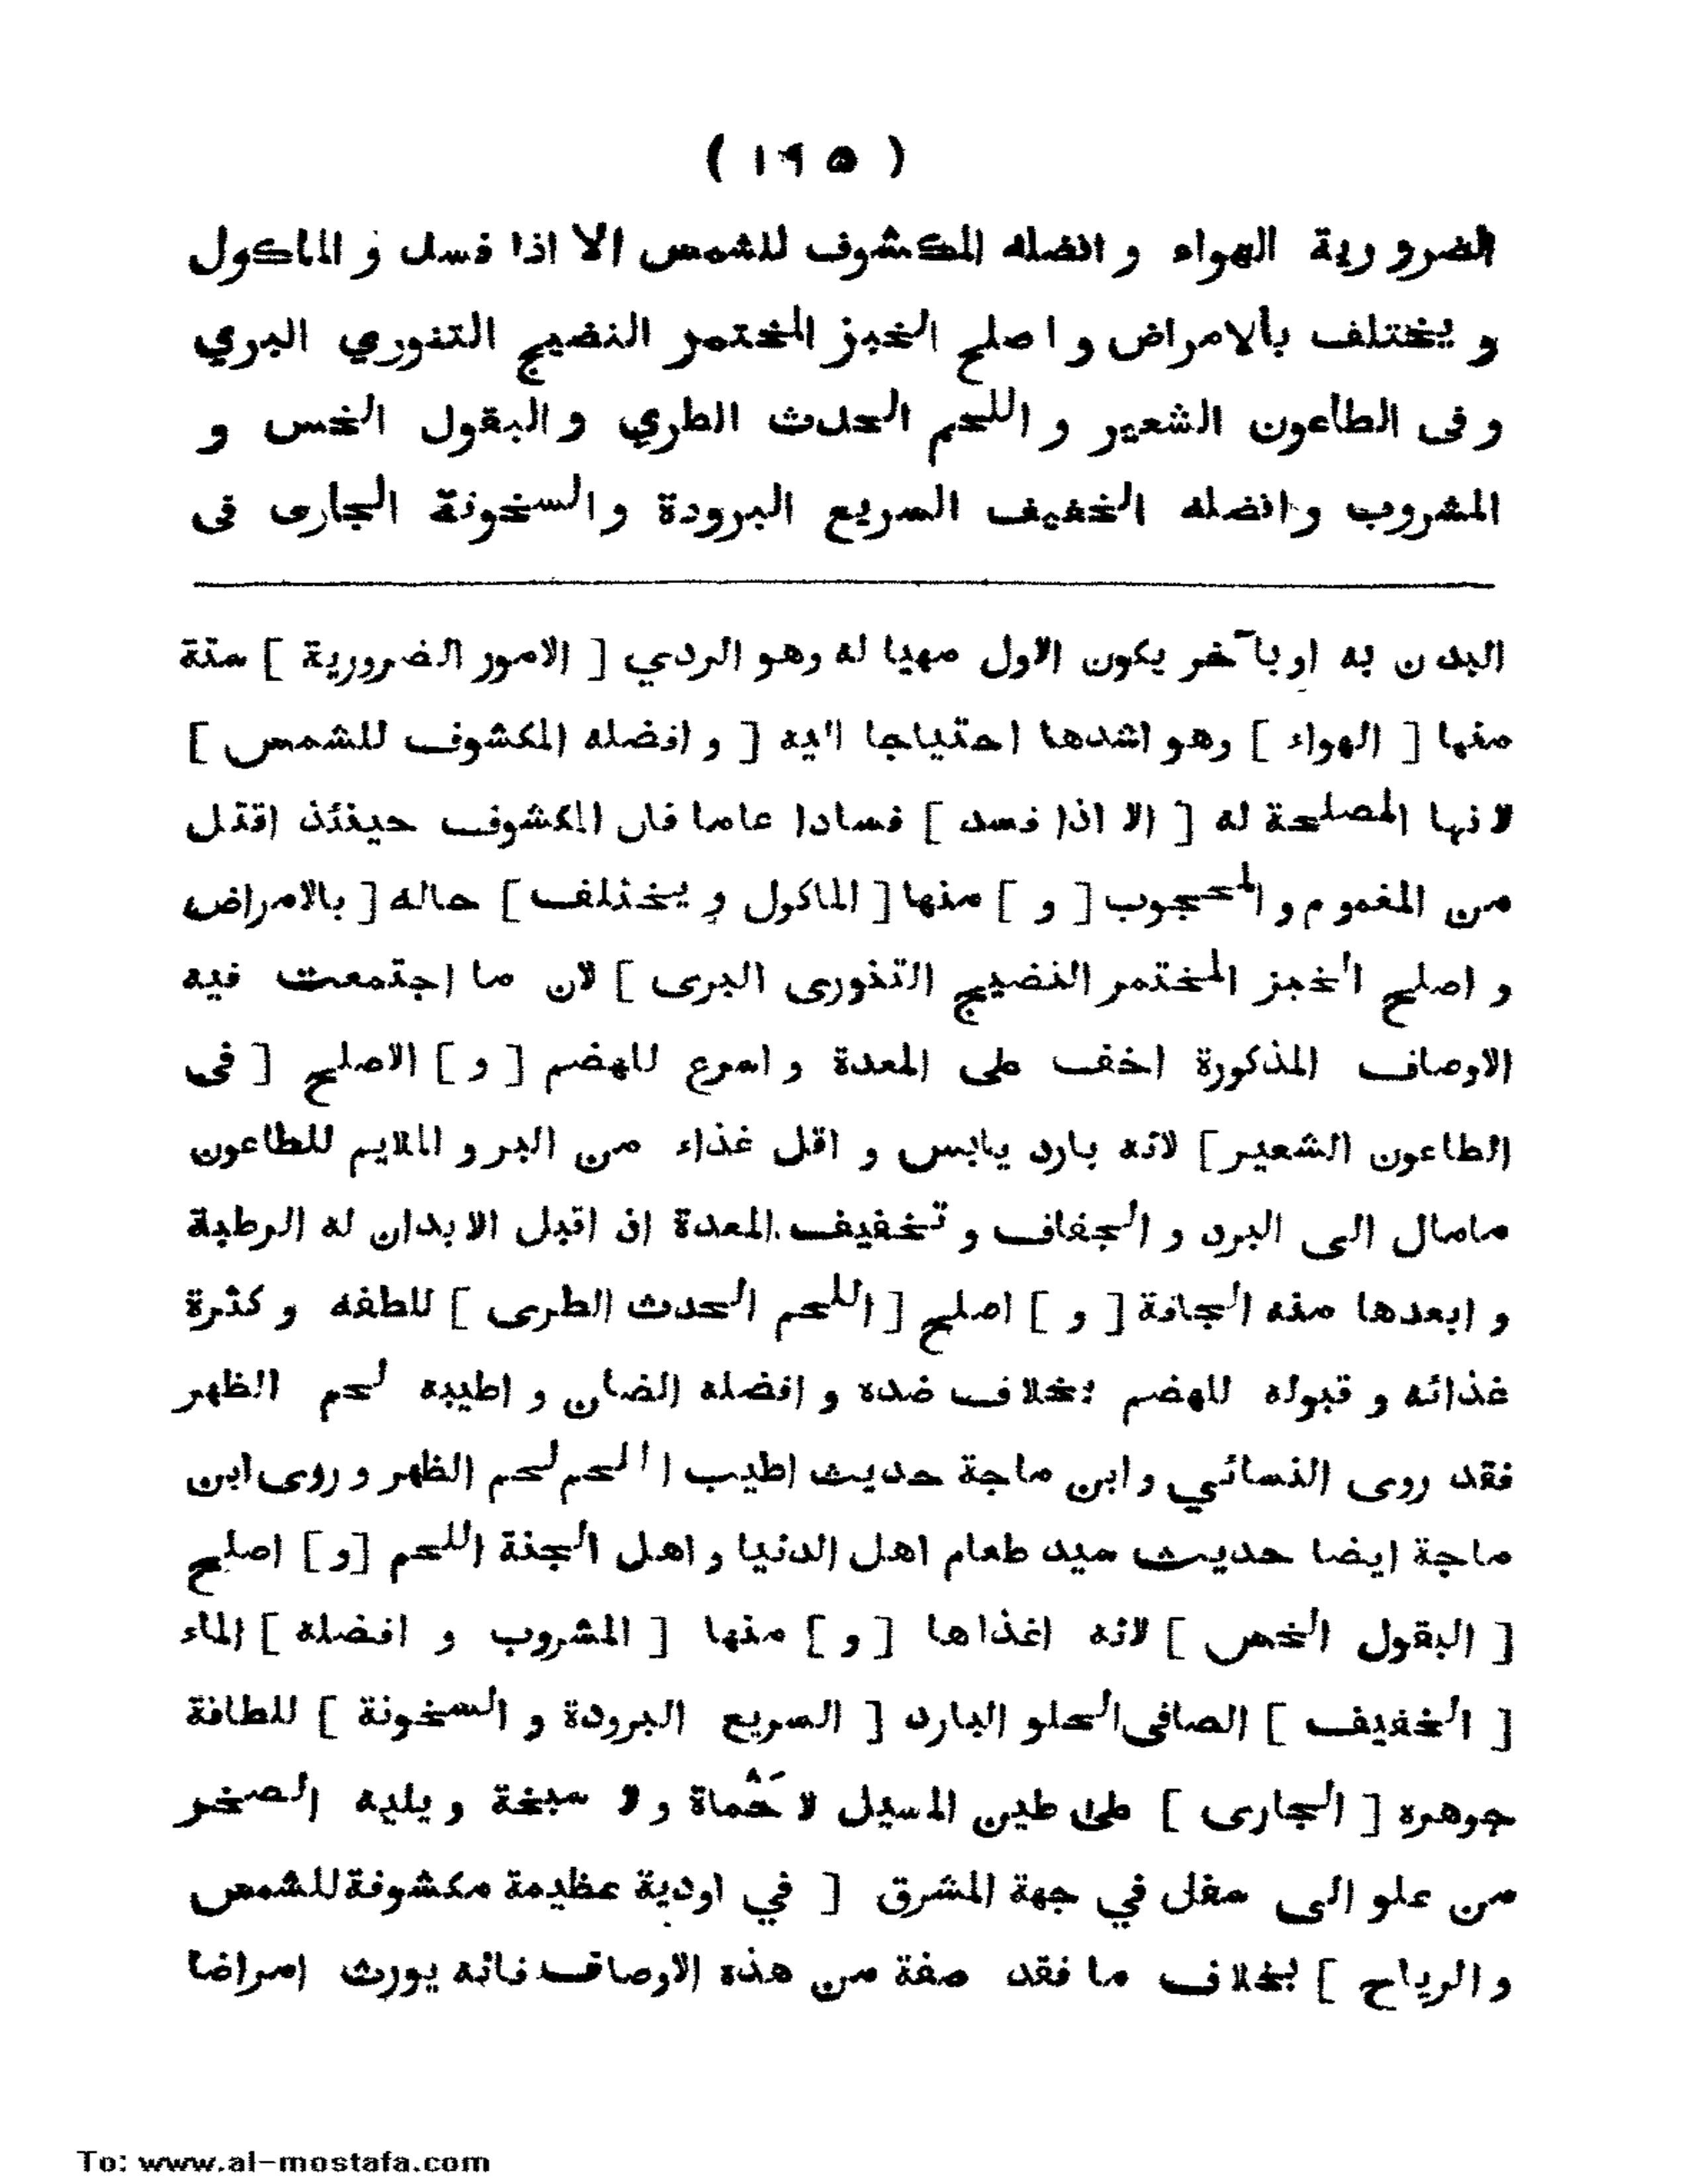 ( ١٩٥ )
الضرورية الهواء و افضله المكشوف للشمس الا اذا فسد و الماكول
و يختلف بالامراض و اصلح الخبز المختمر النضيج التنوري البري
و فى الطاعون الشعير و اللحم الحدث الطري و البقول الخس و
المشروب و افضله الخفيف السريع البرودة والسخونة الجارى فى
البدن به او بآخر يكون الاول مهيا له وهو الردي [ الامور الضرورية ] ستة
منها [ الهواء ] وهو اشدها احتياجا اليه [ و افضله المكشوف للشمس ]
لانها المصلحة له [ الا اذا فسد ] فسادا عاما فان المكشوف حينئذ اقتل
من المغموم و المحجوب [ و ] منها [ الماكول و يختلف ] حاله [ بالامراض
و اصلح الخبز المختمر النضيج التنورى البرى ] لان ما اجتمعت فيه
الاوصاف المذكورة اخف على المعدة و اسرع للهضم [ و ] الاصلح [ فى
الطاعون الشعير ] لانه بارد يابس و اقل غذاء من البر و الملايم للطاعون
مامال الى البرد و الجفاف و تخفيف المعدة اذ اقبل الابدان له الرطبة
و ابعدها منه الجافة [ و ] اصلح [ اللحم الحدث الطرى ] للطفه و كثرة
غذائه و قبوله للهضم بخلاف ضده و افضله الضان و اطيبه لحم الظهر
فقد روى النسائي و ابن ماجة حديث اطيب اللحم لحم الظهر و روى ابن
ماجة ايضا حديث سيد طعام اهل الدنيا و اهل الجنة اللحم [و] اصلح
[ البقول الخس ] لانه اغذاها [ و ] منها [ المشروب و افضله ] الماء
[ الخفيف ] الصافى الحلو البارد [ السريع البرودة و السخونة ] للطافة
جوهره [ الجارى ] على طين المسيل لا حَمْاة و لا سبخة و يليه الصخر
من علو الى سفل في جهة المشرق [ في اودية عظيمة مكشوفة للشمس
و الرياح ] بخلاف ما فقد صفة من هذه الاوصاف فانه يورث امراضا
To: www.al-mostafa.com